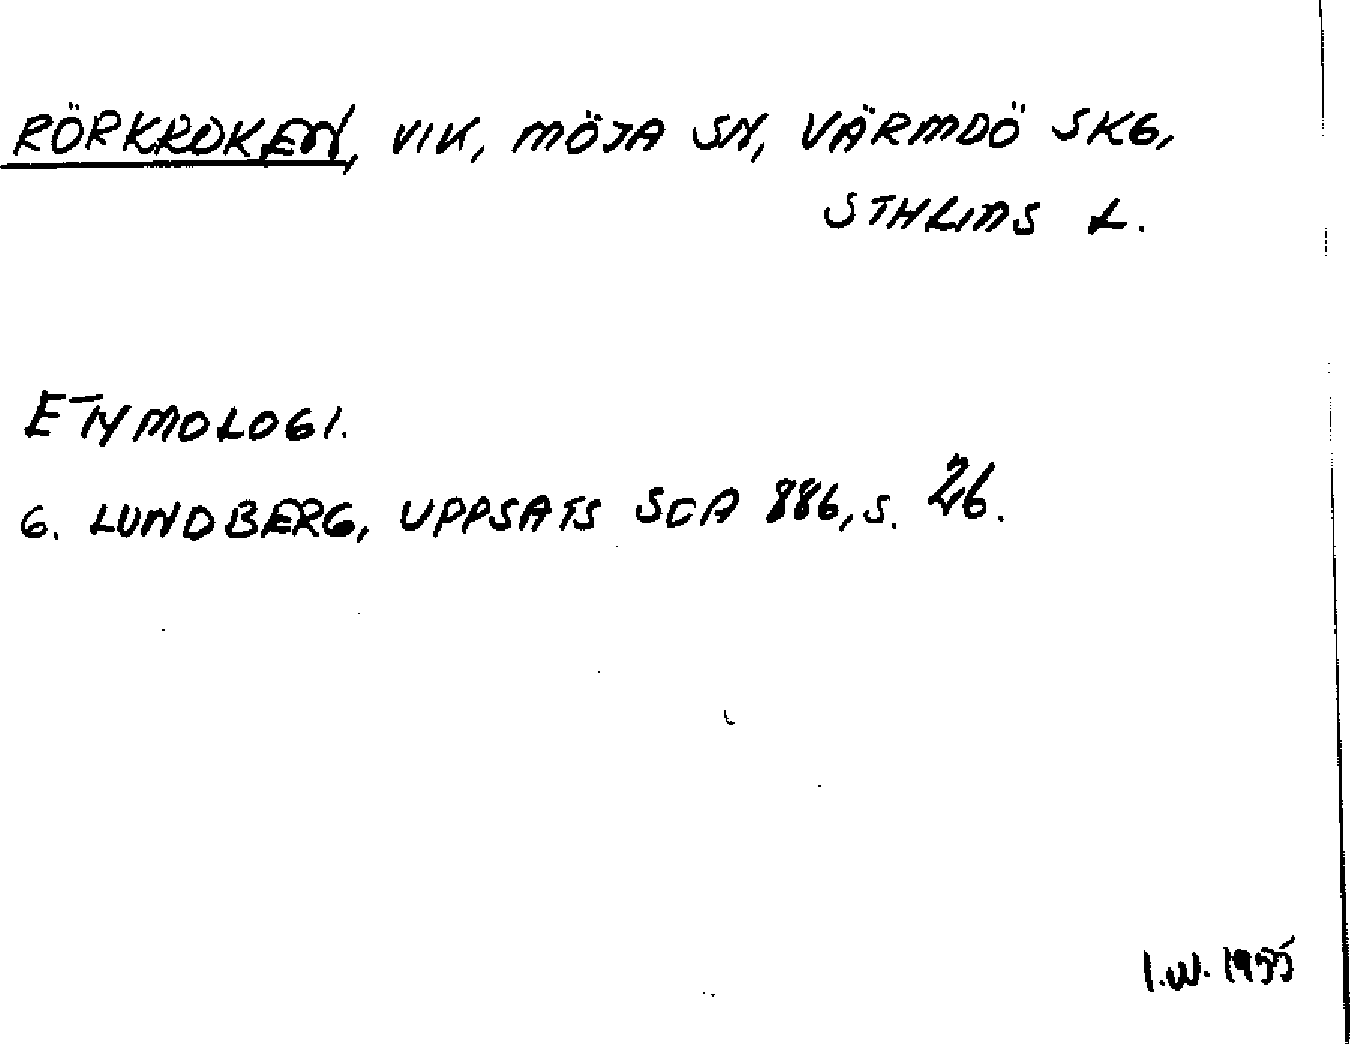 RÖRKROKEN, VIK, MÖJA SN, VÄRMDÖ SKG,
STHLMS L.
ETYMOLOGI.
G. LUNDBERG, UPPSATS SOA 886, S. 26.
I.W. 1955